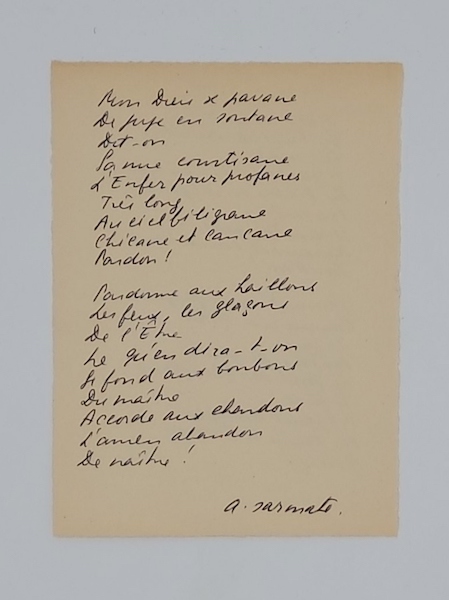 Mon Dieu se pavane
De jupe en soutane
Dit-on
Sa nue courtisane
L'Enfer pour profanes
Très long
Au ciel filigrane
Chicane et cancane
Pardon!
Pardonne aux haillons
Les feux, les glaçons
De l'Être
Le qu'en dira-t-on
Se fond aux bonbons
Du maître
Accorde aux chardons
L'amen abandon
De naître!
A. Sarmate.